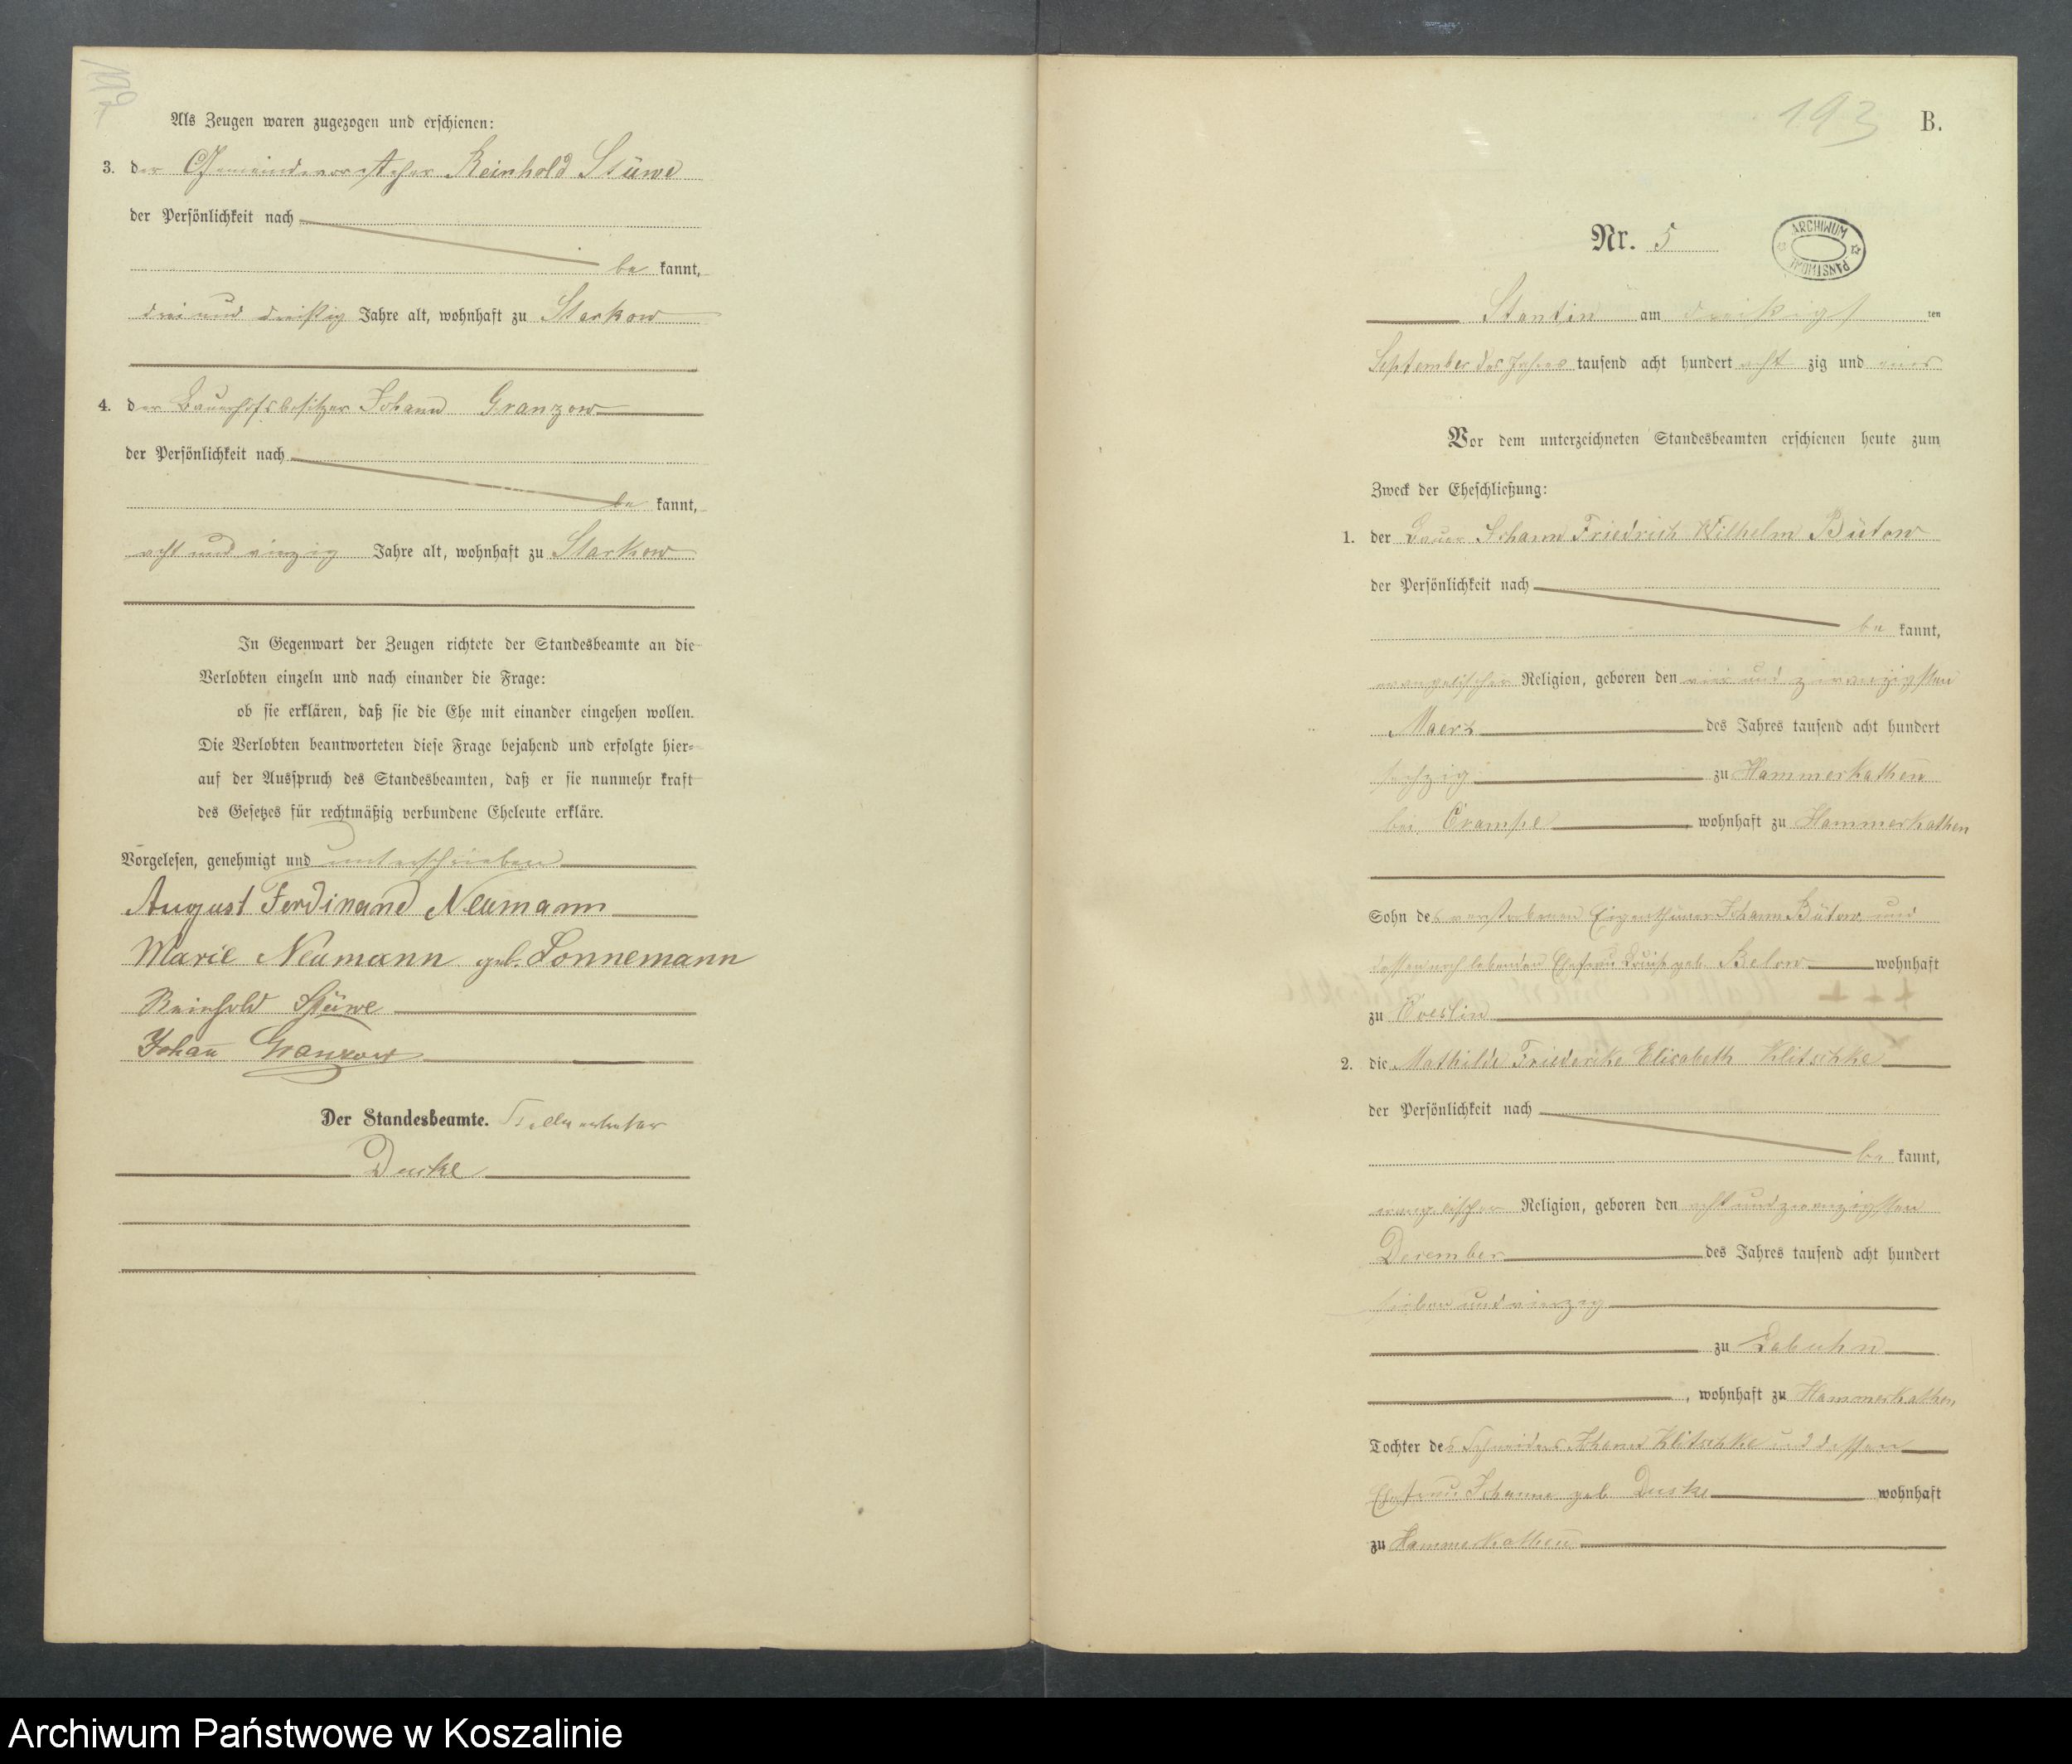 192
Als Zeugen waren zugezogen und erschienen:
3. der Gemeindevorsteher Reinhold Stüwe
der Persönlichkeit nach
be kannt,
drei und dreißig Jahre alt, wohnhaft zu Starkow
4. der Bauerhofsbesitzer Johann Granzow
der Persönlichkeit nach
be kannt,
acht und vierzig Jahre alt, wohnhaft zu Starkow
In Gegenwart der Zeugen richtete der Standesbeamte an die
Verlobten einzeln und nach einander die Frage:
ob sie erklären, daß sie die Ehe mit einander eingehen wollen.
Die Verlobten beantworteten diese Frage bejahend und erfolgte hier-
auf der Ausspruch des Standesbeamten, daß er sie nunmehr kraft
des Gesetzes für rechtmäßig verbundene Eheleute erkläre.
Vorgelesen, genehmigt und unterschrieben
August Ferdinand Neumann
Marie Neumann geb. Sonnemann
Reinhold Stüwe
Johann Granzow
Der Standesbeamte. Stellvertreter
193
B.
Nr. 5
ARCHIWUM PAŃSTWOWE
Stantin am dreißigsten
September des Jahres tausend acht hundert acht zig und vier
Vor dem unterzeichneten Standesbeamten erschienen heute zum
Zweck der Eheschließung:
1. der Bauer Johann Friedrich Wilhelm Bütow
der Persönlichkeit nach
be kannt,
evangelischer Religion, geboren den vier und zwanzigsten
Maerz des Jahres tausend acht hundert
sechzig zu Hammerkathen
bei Crampe wohnhaft zu Hammerkathen
Sohn des verstorbenen Eigenthümer Johann Bütow und
dessen noch lebenden Ehefrau Louise geb. Below wohnhaft
zu Coeslin
2. die Mathilde Friederike Elisabeth Klitschke
der Persönlichkeit nach
be kannt,
evangelischer Religion, geboren den acht und zwanzigsten
December des Jahres tausend acht hundert
sieben und vierzig
zu Labuhn
, wohnhaft zu Hammerkathen
Tochter des Schneider Johann Klitschke und dessen
Ehefrau Johanne geb. wohnhaft
zu Hammerkathen
Archiwum Państwowe w Koszalinie